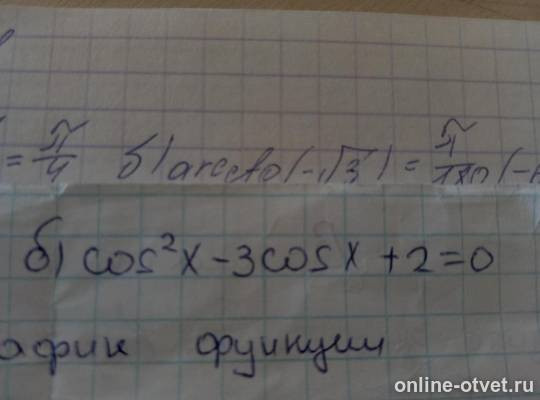 = π/4 б) arcctg(-√3) = π/180 (-
б) cos²x - 3cosx + 2 = 0
афик функции
online-otvet.ru